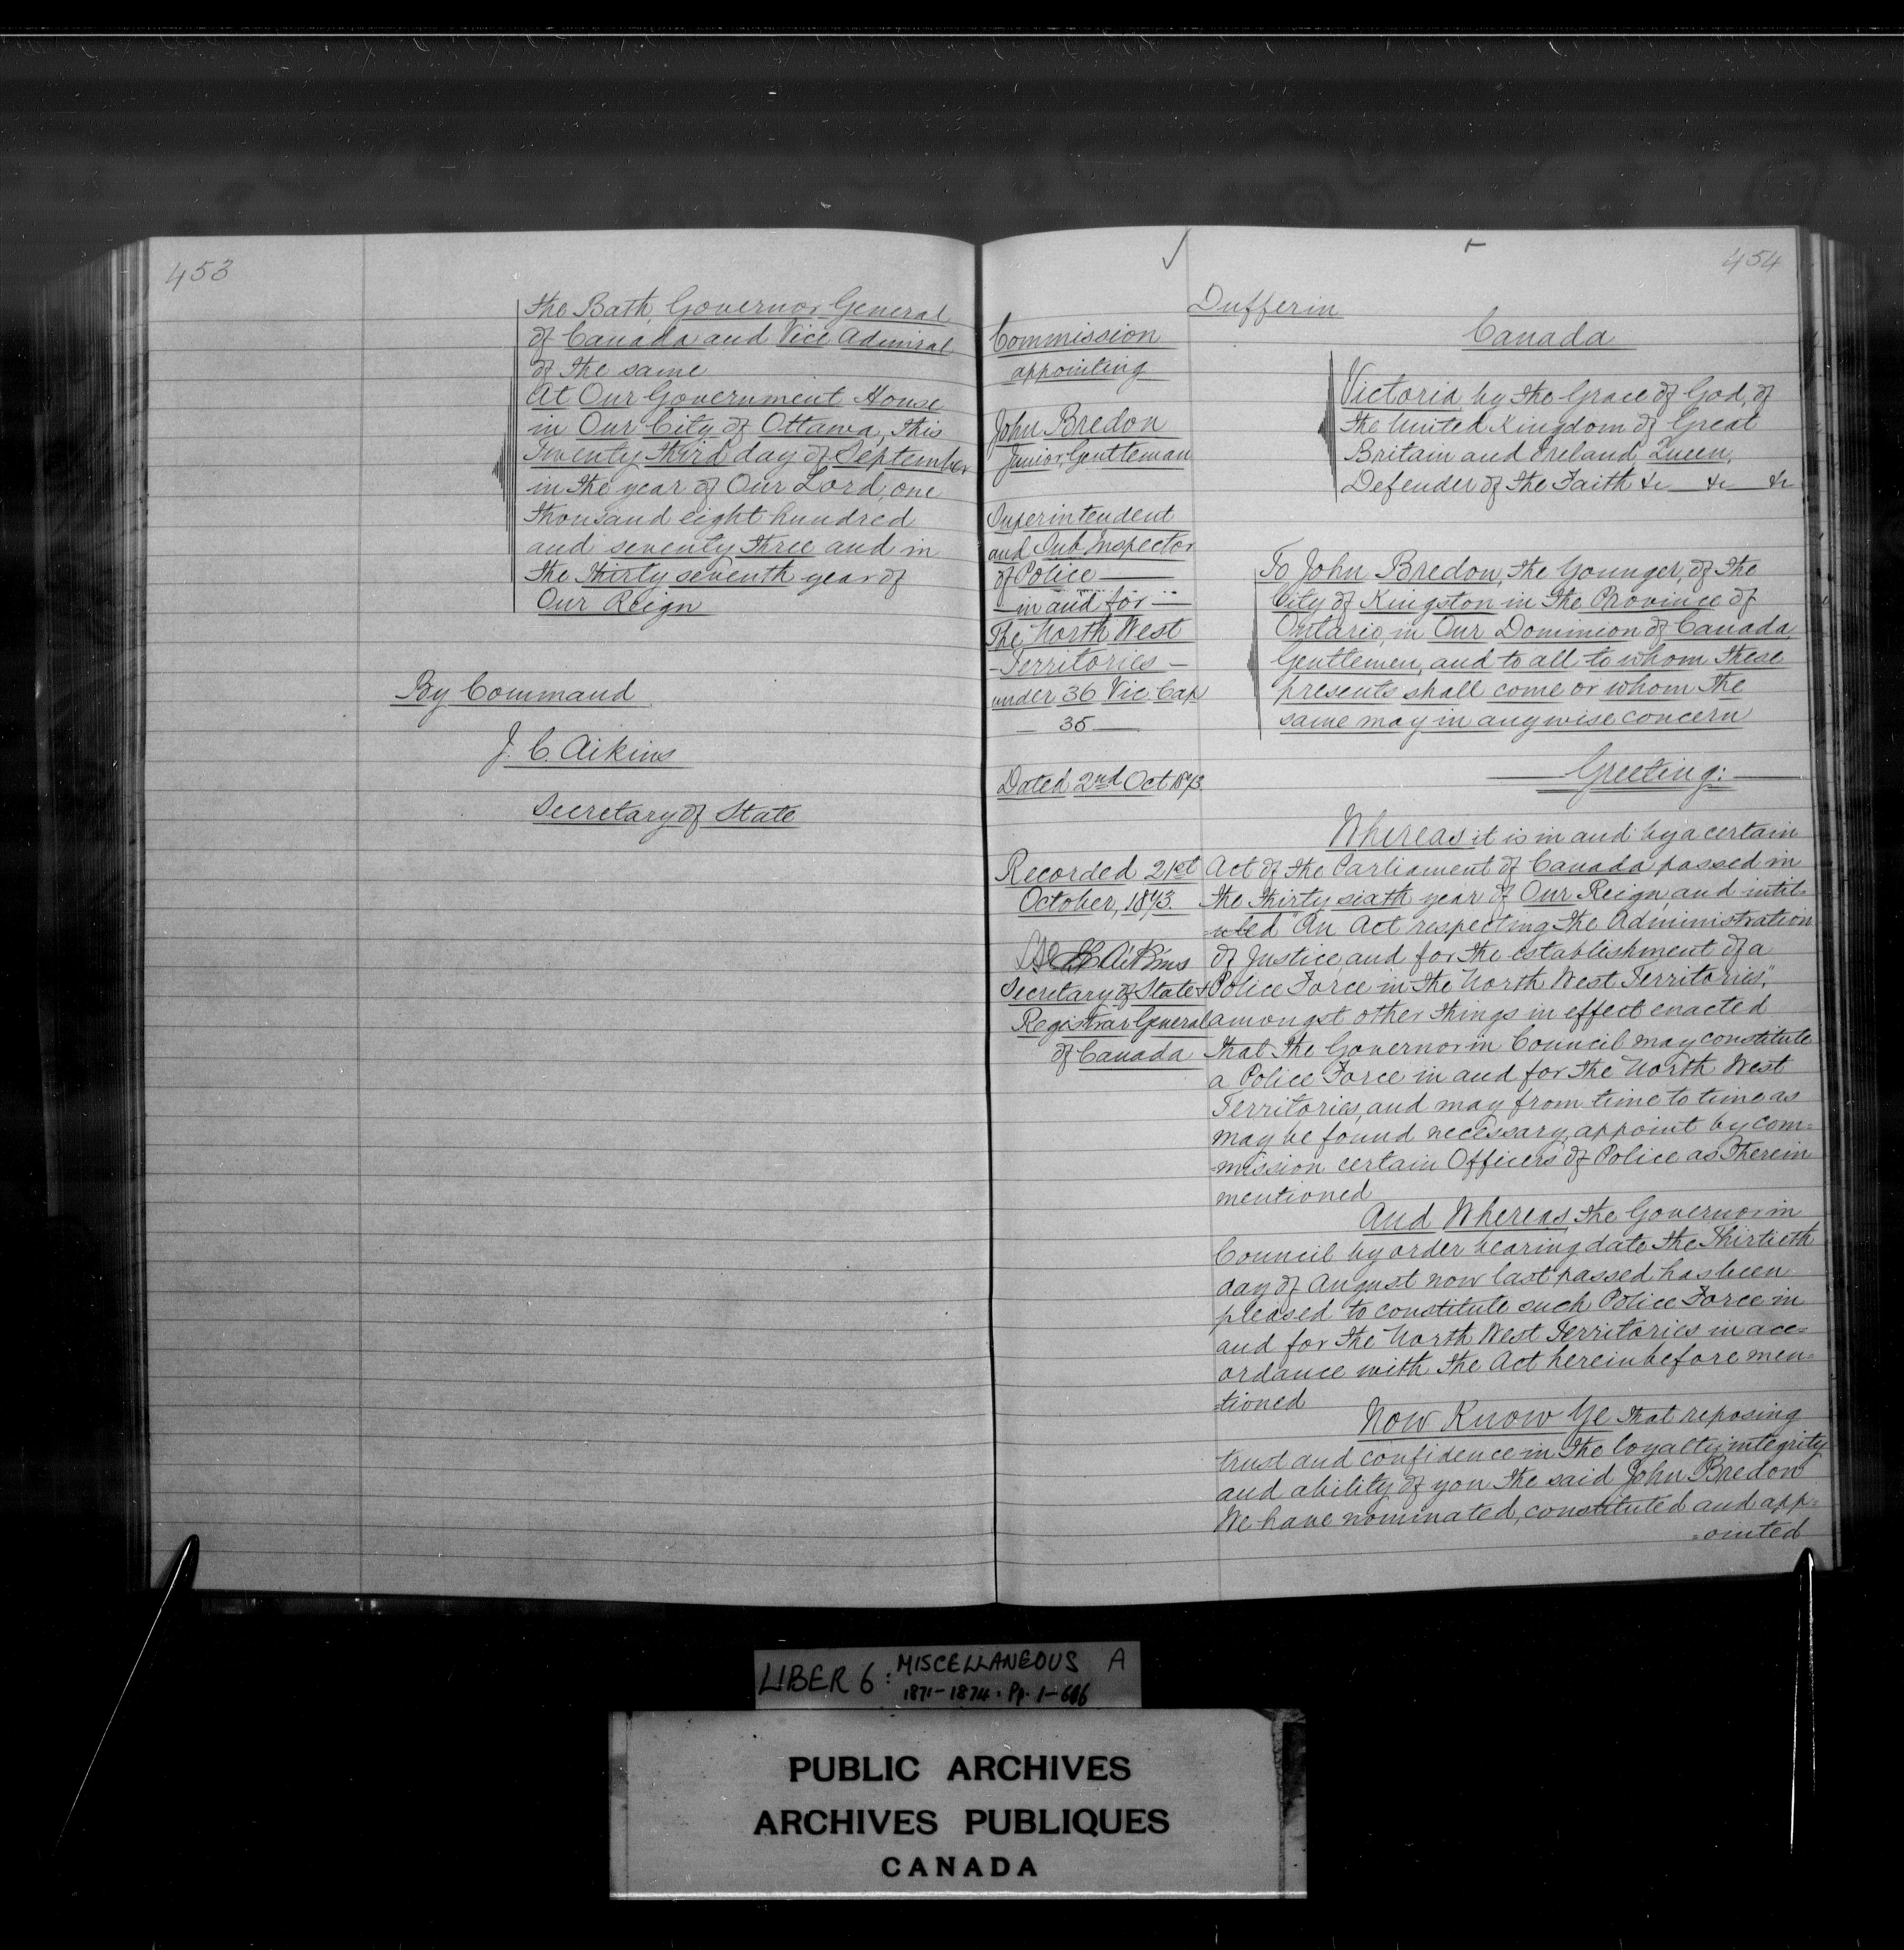 453
the Bath, Governor General
of Canada and Vice Admiral
of the same
At Our Government House
in Our City of Ottawa, this
Twenty third day of September
in the year of Our Lord, one
thousand eight hundred
and seventy three and in
the thirty seventh year of
Our Reign
By Command
J. C. Aikins
Secretary of State
454
Dufferin
Canada
Commission
appointing
John Bredon
Junior, Gentleman
Superintendent
and Sub Inspector
of Police
in and for
The North West
Territories
under 36 Vic Cap
35
Dated 2nd Oct 1873.
Recorded 21st
October, 1873.
Aikins
Secretary of State &
Registrar General
of Canada
Victoria by the Grace of God, of
the United Kingdom of Great
Britain and Ireland Queen,
Defender of the Faith &c &c &c
To John Bredon, the Younger, of the
City of Kingston in the Province of
Ontario, in Our Dominion of Canada,
Gentlemen, and to all to whom these
presents shall come or whom the
same may in anywise concern
Greeting:
Whereas it is in and by a certain
Act of the Parliament of Canada passed in
the thirty sixth year of Our Reign, and intit-
uled "An Act respecting the Administration
of Justice, and for the establishment of a
Police Force in the North West Territories",
amongst other things in effect enacted
that the Governor in Council may constitute
a Police Force in and for the North West
Territories, and may from time to time as
may be found necessary, appoint by com=
mission certain Officers of Police as therein
mentioned
And Whereas, the Governor in
Council by order bearing date the Thirtieth
day of August now last passed has been
pleased to constitute such Police Force in
and for the North West Territories in acc=
ordance with the Act hereinbefore men=
=tioned
Now Know Ye that reposing
trust and confidence in the loyalty, integrity
and ability of you the said John Bredon
We have nominated, constituted and app=
=ointed
LIBER 6: MISCELLANEOUS A
1871-1874. Pp. 1-606
PUBLIC ARCHIVES
ARCHIVES PUBLIQUES
CANADA